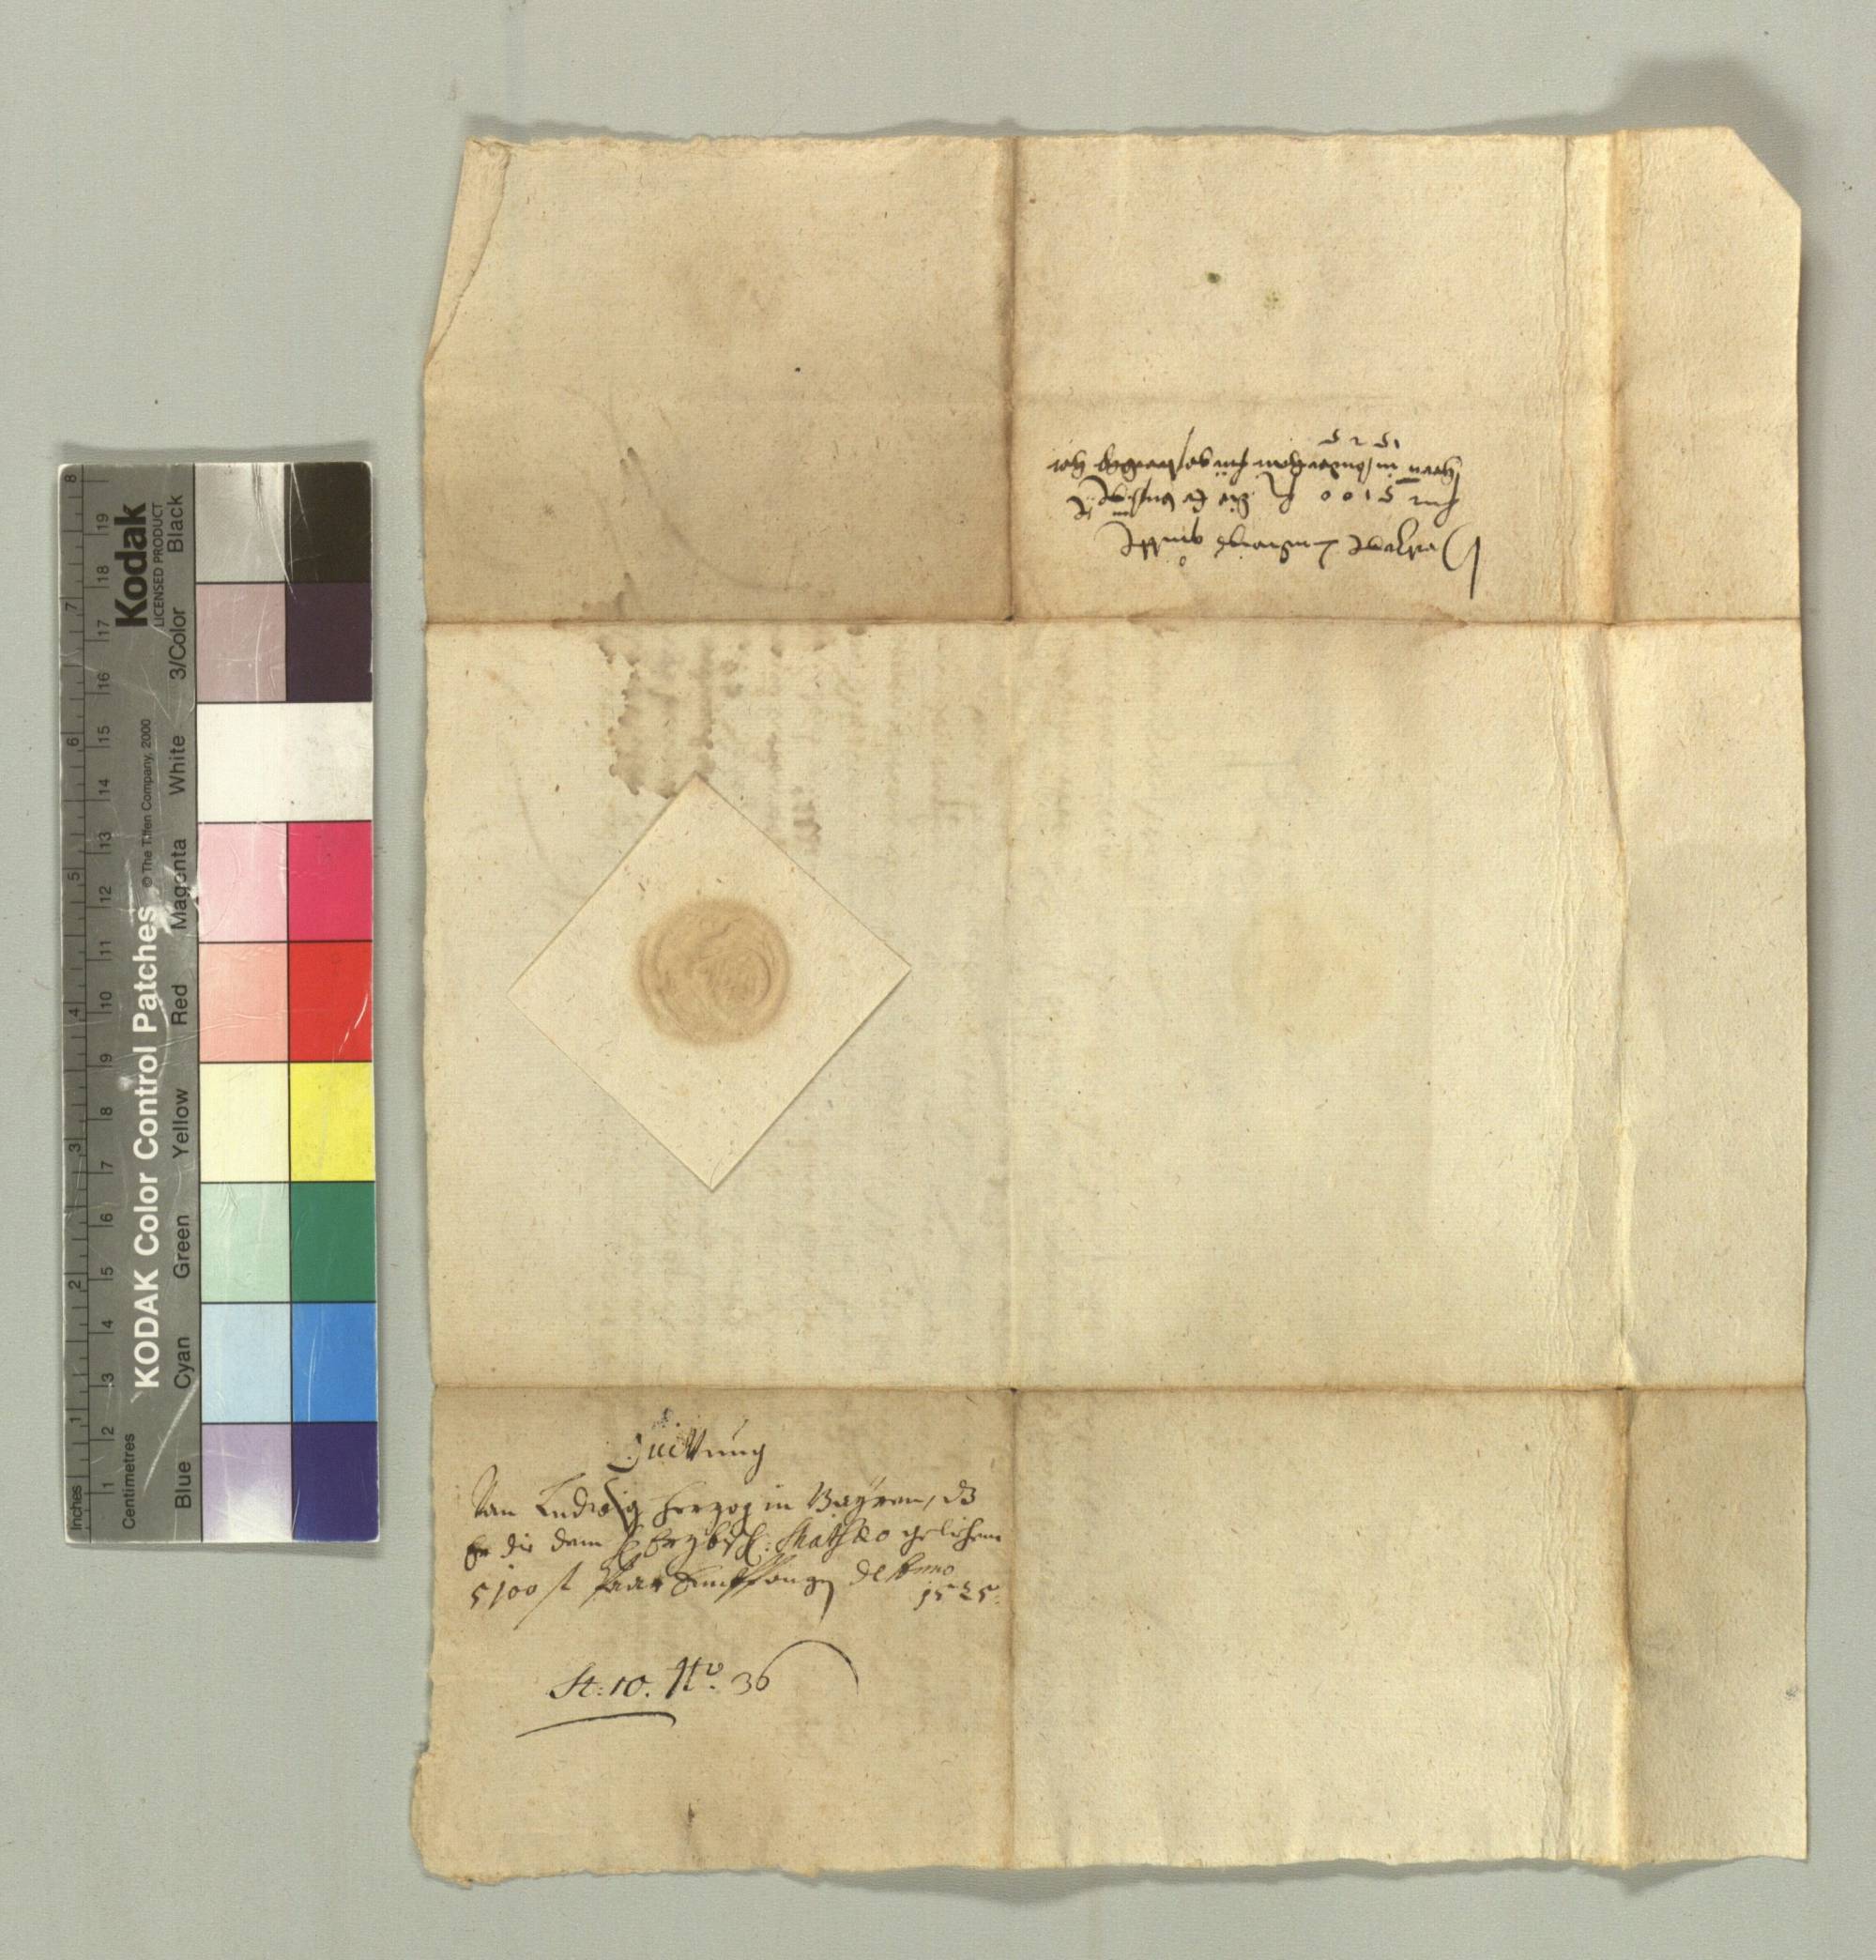 Hertzog Ludwigs quitt
fur 5100 fl die er
1525
Quittung
Von Ludwig Herzog in Bayrn, dz
Er die dem Erzbsch: Mathæo gelichene
5100 fl paar Empfangen de Anno
1525.
St: 10. No. 36
Kodak
LICENSED PRODUCT
KODAK Color Control Patches
© The Tiffen Company, 2000
Blue Cyan Green Yellow Red Magenta White 3/Color Black
Inches 1 2 3 4 5 6 7 8
Centimetres 1 2 3 4 5 6 7 8 9 10 11 12 13 14 15 16 17 18 19